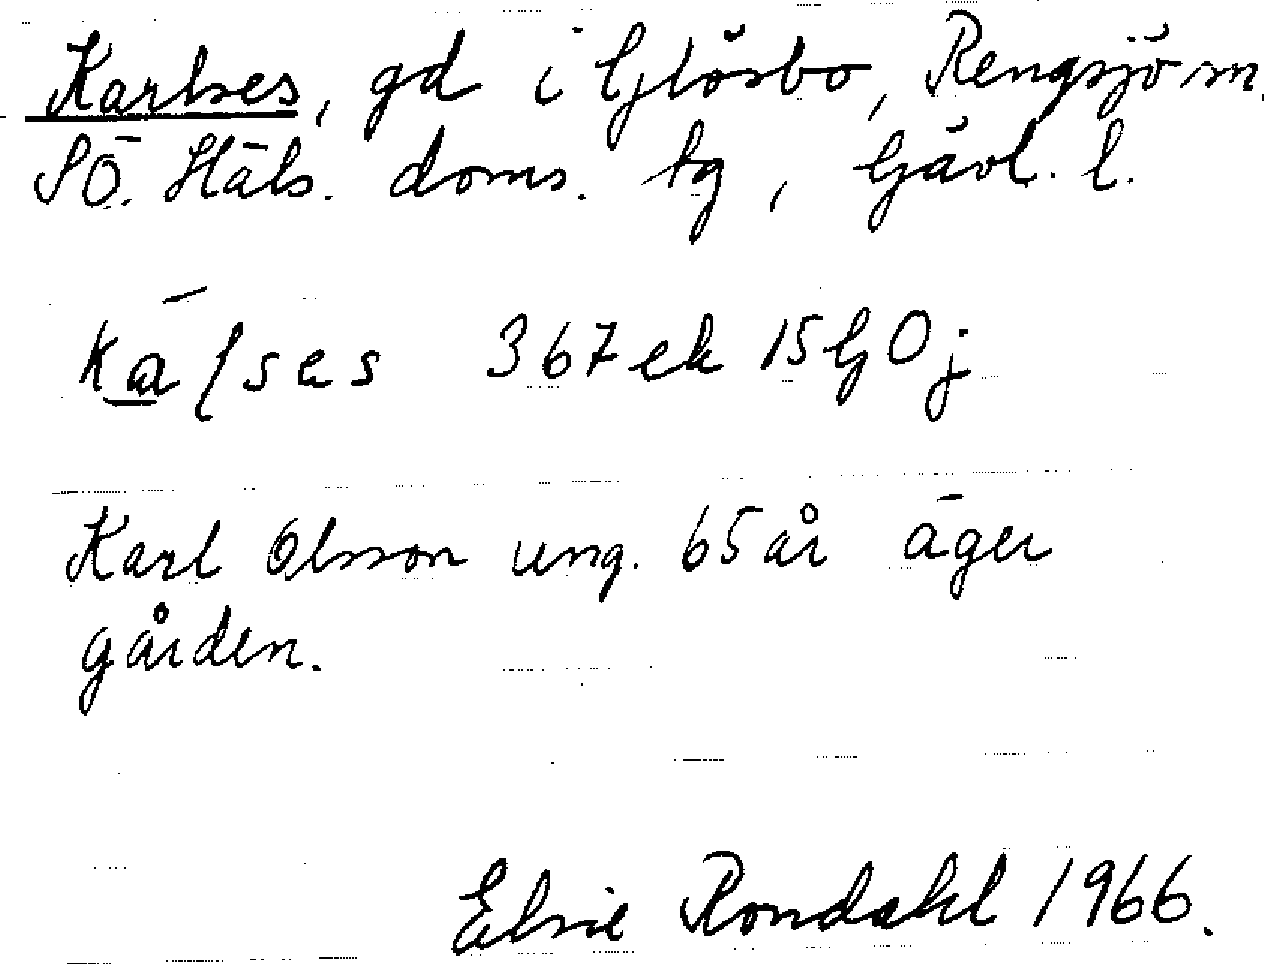 Karlses, gd i Glösbo, Rengsjö sn.
SÖ. Häls. doms. tg, Gävl. l.
kaſses 367 ek 15 G O j
Karl Olsson ung. 65 år äger
gården.
Elsie Rondahl 1966.